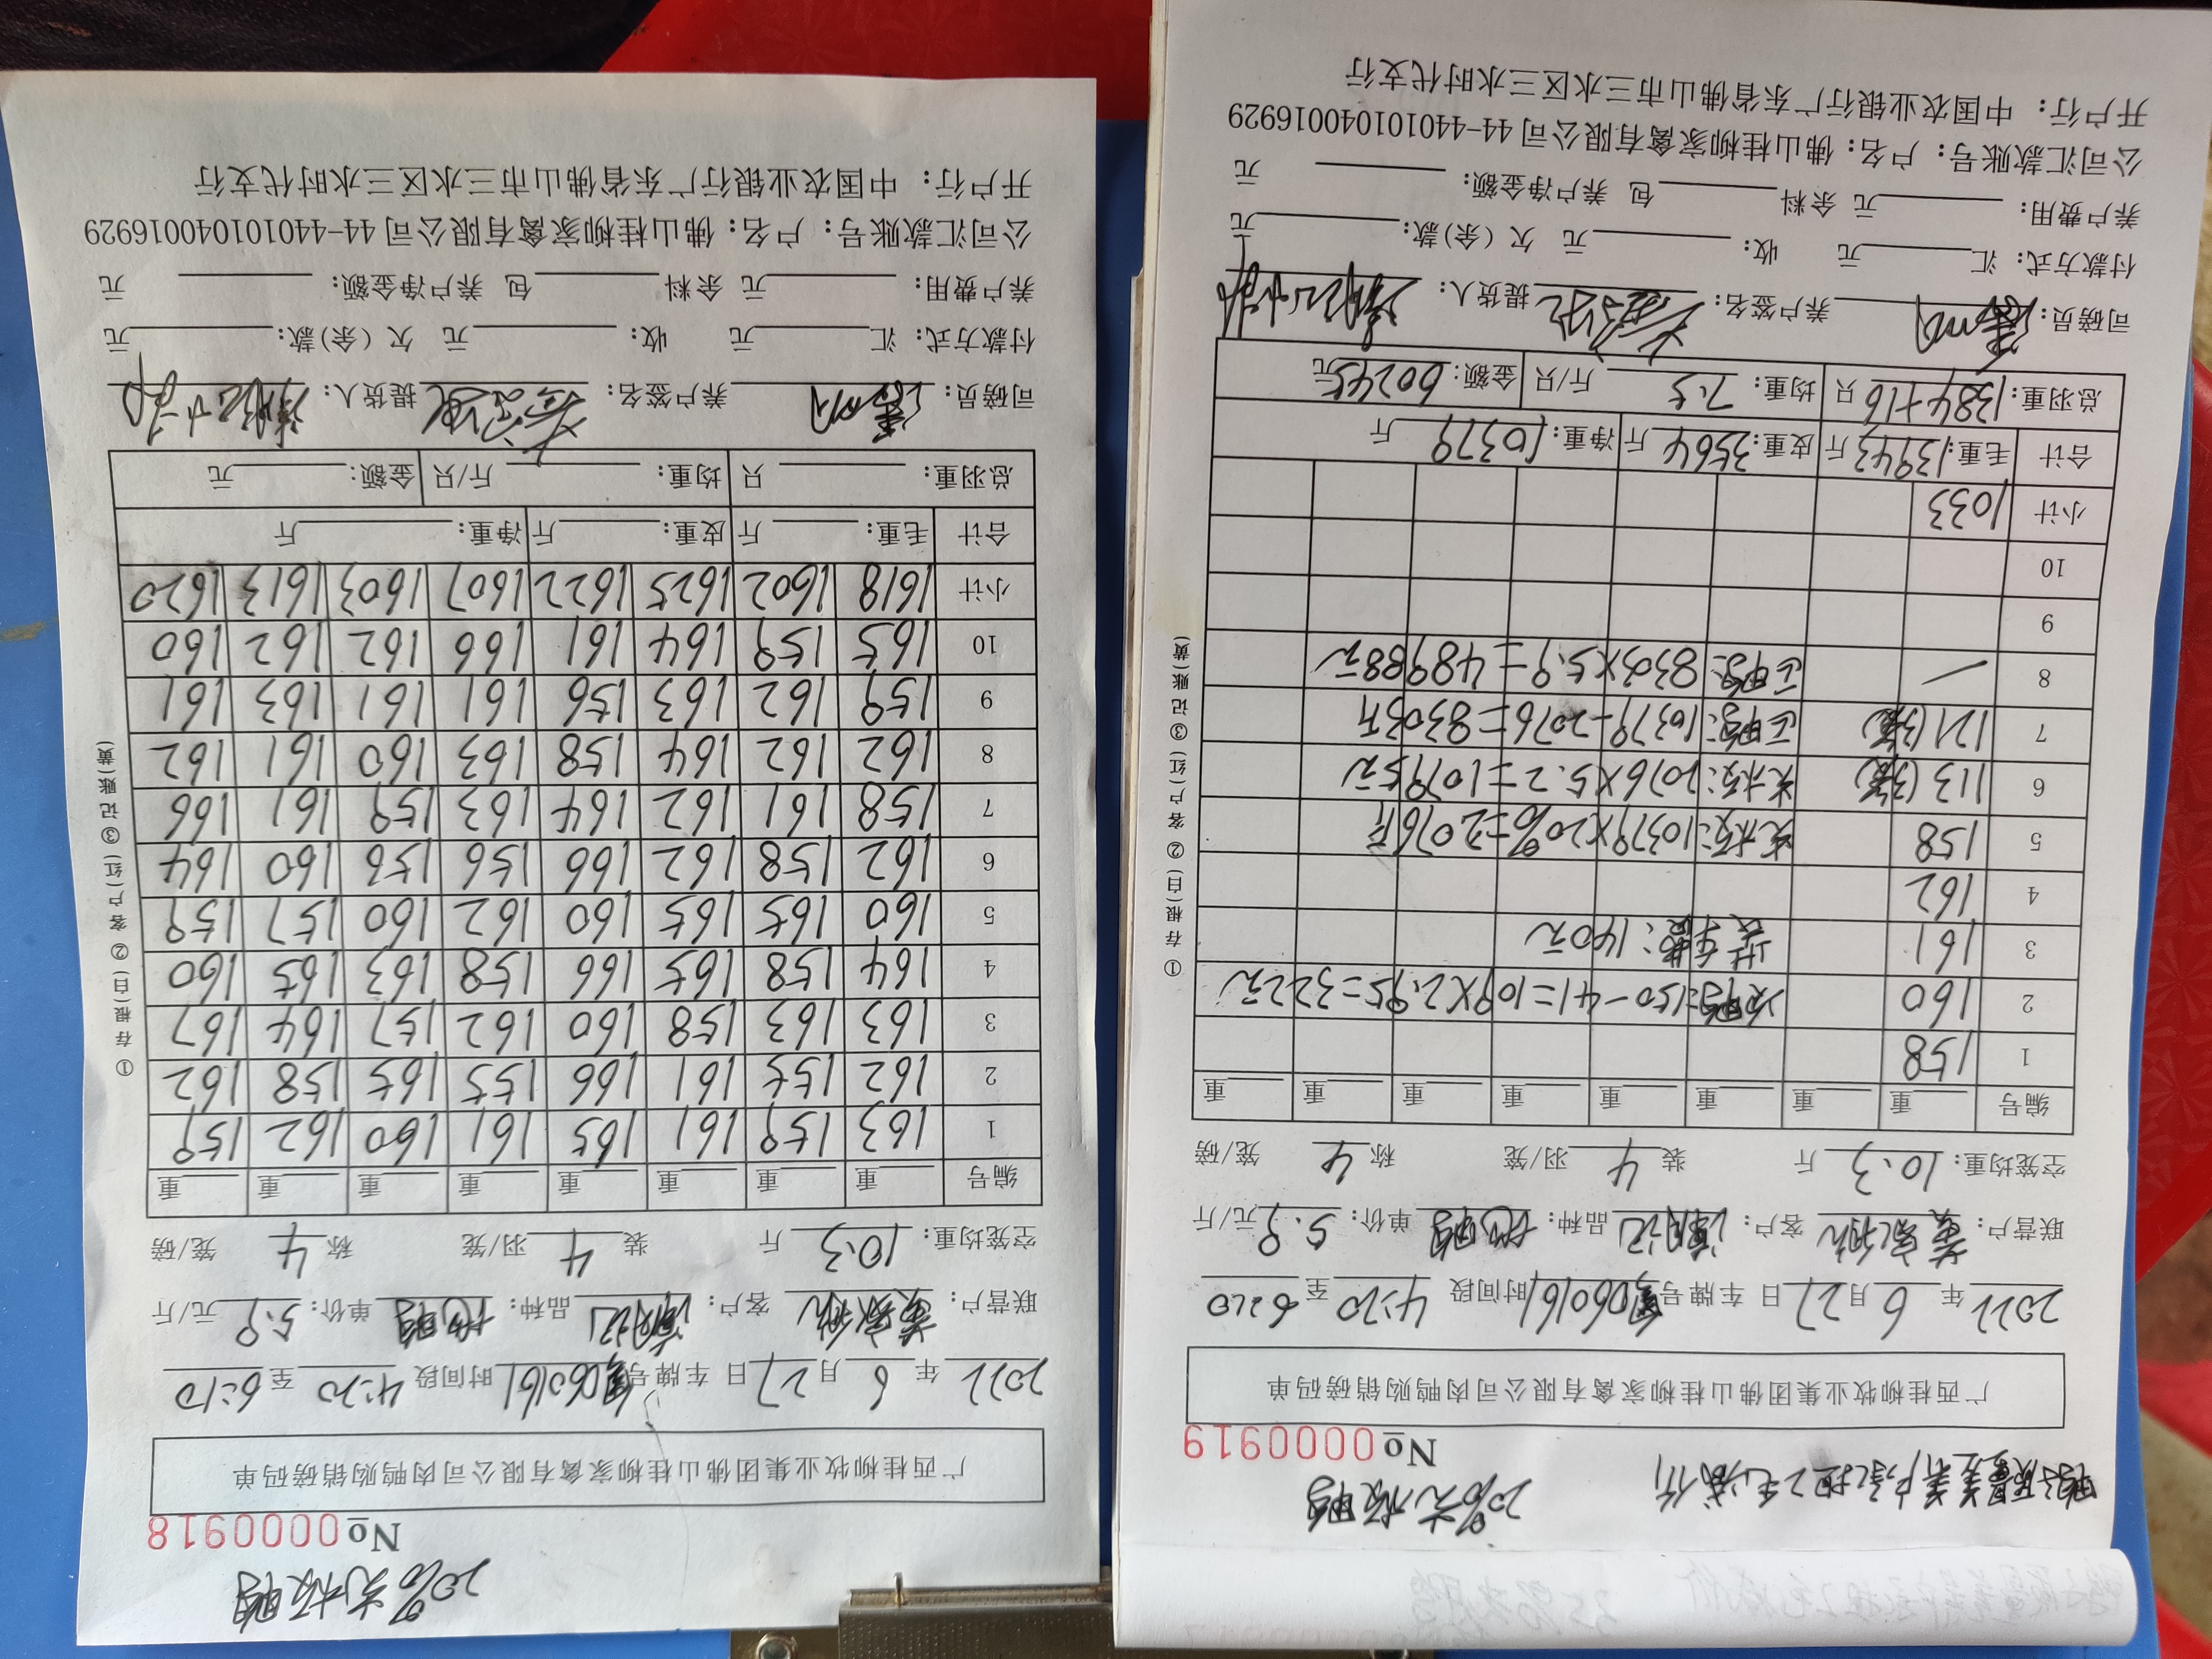 20%光板鸭
№0000918
广西桂柳牧业集团佛山桂柳家禽有限公司肉鸭购销磅码单
2022年6月27日 车牌号 粤060161 时间段 4:20至6:10
联营户: 客户: 潮记 品种: 单价: 5.9元/斤
空笼均重: 10.3斤 装4羽/笼 称4笼/磅
编号 重 重 重 重 重 重 重 重
1 163 159 161 165 161 160 162 159
2 162 155 161 166 155 165 158 162
3 163 163 158 160 162 157 164 167
4 164 158 165 166 158 163 165 160
5 160 165 165 160 162 160 157 159
6 162 158 162 166 156 156 160 164
7 158 161 162 164 163 159 161 166
8 162 162 164 158 163 160 161 162
9 159 162 163 156 161 161 163 161
10 165 159 164 161 166 162 162 160
小计 1618 1602 1625 1622 1607 1603 1613 1620
合计 毛重: 斤 皮重: 斤 净重: 斤
总羽重: 只 均重: 斤/只 金额: 元
司磅员: 养户签名: 提货人:
付款方式: 汇 元 收: 元 欠(余)款: 元
养户费用: 元 余料 包 养户净金额: 元
公司汇款账号: 户名: 佛山桂柳家禽有限公司 44-440101040016929
开户行: 中国农业银行广东省佛山市三水区三水时代支行
①存根(白)②客户(红)③记账(黄)
20%光板鸭
№0000919
广西桂柳牧业集团佛山桂柳家禽有限公司肉鸭购销磅码单
2022年6月27日 车牌号 粤060161 时间段 4:20至6:10
联营户: 客户: 潮记 品种: 单价: 5.9元/斤
空笼均重: 10.3斤 装4羽/笼 称4笼/磅
编号 重 重 重 重 重 重 重 重
1 158
2 160 次鸭: 150-41=109×2.95=322元
3 161 140元
4 162
5 158 光板: 10379×20%=2076斤
6 113(3笼) 光板: 2076×5.2=10795元
7 121(3笼) 正鸭: 10379-2076=8303斤
8 — 正鸭: 8303×5.9=48988元
9
10
小计 1033
合计 毛重: 13943斤 皮重: 3564斤 净重: 10379斤
总羽重: 1384+16只 均重: 7.5斤/只 金额: 60245元
司磅员: 养户签名: 提货人:
付款方式: 汇 元 收: 元 欠(余)款: 元
养户费用: 元 余料 包 养户净金额: 元
公司汇款账号: 户名: 佛山桂柳家禽有限公司 44-440101040016929
开户行: 中国农业银行广东省佛山市三水区三水时代支行
①存根(白)②客户(红)③记账(黄)